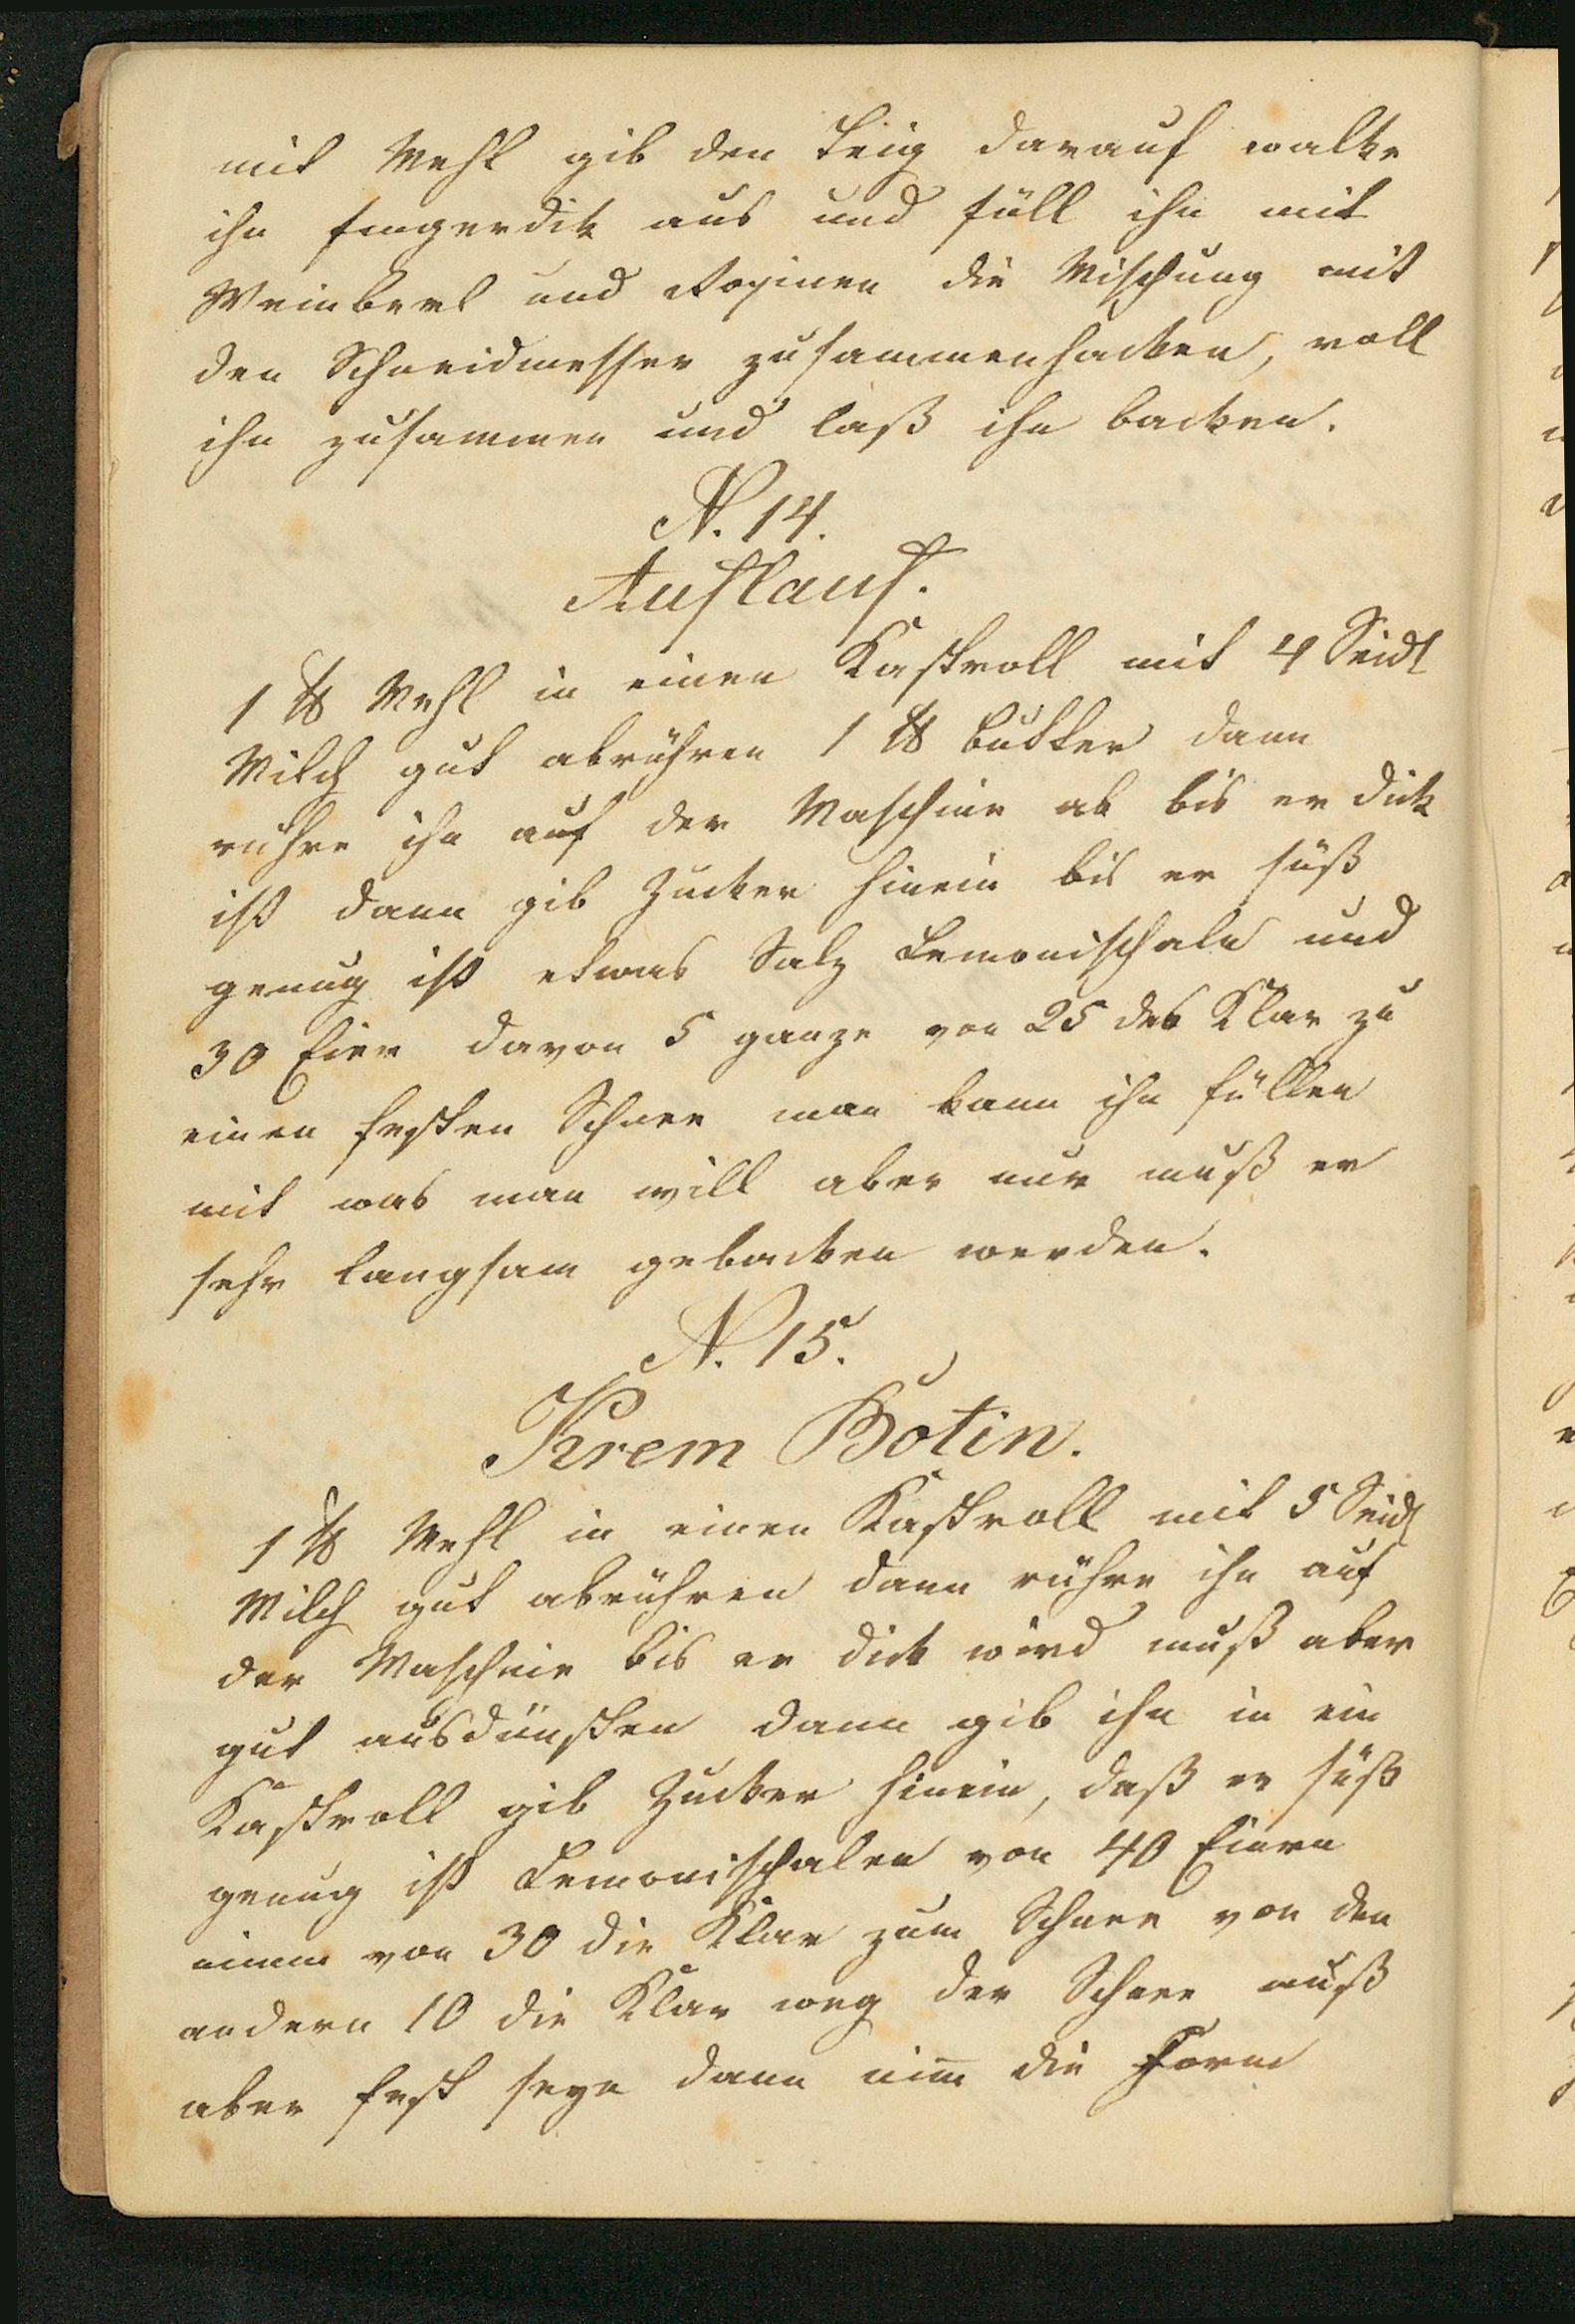 mit Mehl gib den Teig darauf walke
ihn fingerdik aus und füll ihn mit
Weinberl und Rosinen die Mischung mit
den Schneidmesser zusammenhacken, roll
ihn zusammen und laß ihn backen.
N. 14.
Auflauf.
1 ℔ Mehl in einen Kastroll mit 4 Seidl
Milch gut abrühren 1 ℔ Butter dann
rühre ihn auf der Maschine ab bis er dick
ist dann gib Zucker hinein bis er süß
genug ist etwas Salz Lemonischale und
30 Eier davon 5 ganze von 25 das Klar zu
einen festen Schnee man kann ihn füllen
mit was man will aber nur muß er
sehr langsam gebacken werden.
N. 15.
Krem Botin.
1 ℔ Mehl in einen Kastroll mit 5 Seidl
Milch gut abrühren dann rühre ihn auf
der Maschine bis er dick wird muß aber
gut ausdünsten dann gib ihn in ein
Kastroll gib Zucker hinein, daß er süß
genug ist Lemonischalen von 40 Eiern
nimm von 30 die Klar zum Schnee von den
andern 10 die Klar weg der Schnee muß
aber fest seyn dann nim̅ die Form